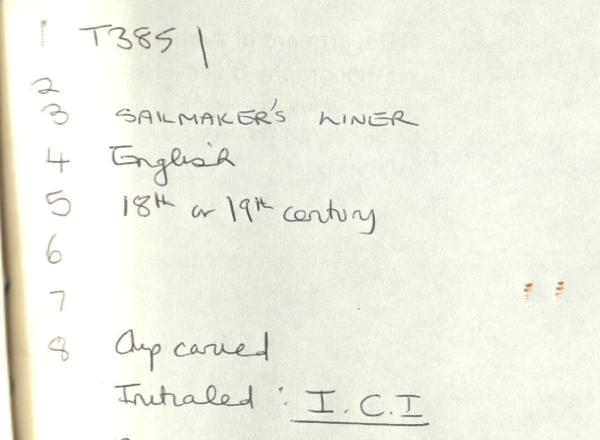 1 T385 |
2
3 SAILMAKER'S LINER
4 English
5 18th or 19th century
6
7
8 Chip carved
Initialed : I.C.I